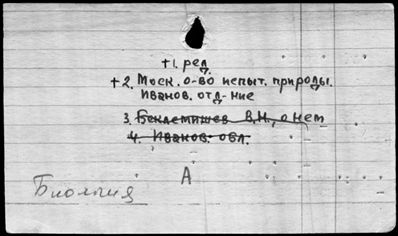 +1. ред.
+2. Моск. о-во испыт. природы.
Иванов. отд-ние
3. Беклемишев В.Н., о нем
4. Иванов. обл.
А
Биология